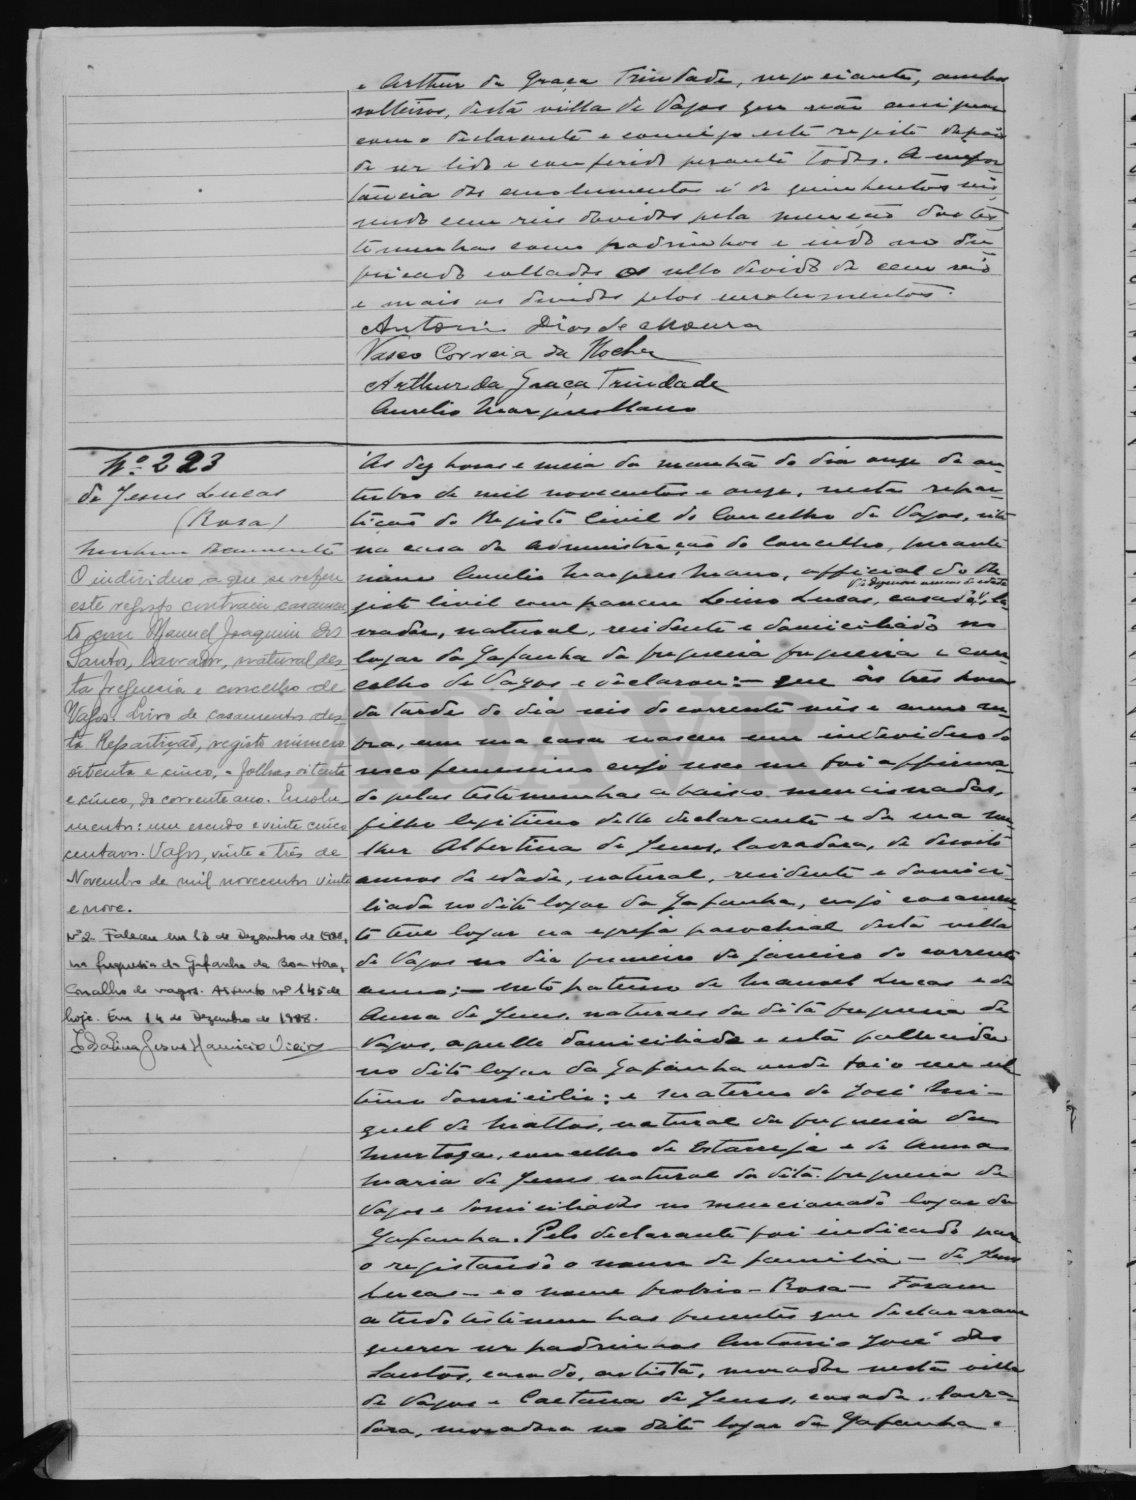 e Arthur da Graça Trindade, negociante, ambos
solteiros, desta villa de Vagos que vão assignar
com o declarante e commigo este registo depois
de ser lido e conferido perante todos. A impor-
tancia dos emolumentos é de quinhentos reis
sendo cem reis devidos pela menção das tes-
temunhas como padrinhos e indo no du-
plicado collados o sello devido de cem reis
e mais os devidos pelos emolumentos.
Antonio Dias de Moura
Vasco Correia da Rocha
Arthur da Graça Trindade
Aurelio Marques Mano
Nº 223
de Jesus Lucas
(Rosa)
Nenhum documento
O individuo a que se refere
este registo contraiu casamen-
to com Manuel Joaquim dos
Santos, lavrador, natural des-
ta freguesia e concelho de
Vagos. Livro de casamentos des-
ta Repartição, registo numero
oitenta e cinco, a folhas oitenta
e cinco, do corrente ano. Emolu-
mentos: um escudo e vinte cinco
centavos. Vagos, vinte e três de
Novembro de mil novecentos vinte
e nove.
Nº 2 Faleceu em 13 de Dezembro de 1988,
na freguesia da Gafanha da Boa Hora,
Concelho de Vagos. Assento nº 145 de
hoje. Em 14 de Dezembro de 1988.
Jesus
Ás dez horas e meia da manhã do dia onze de ou-
tubro de mil novecentos e onze, nesta repar-
tição do Registo Civil do Concelho de Vagos, sita
na casa da administração do concelho, perante
mim Aurelio Marques Mano, official do Re-
de dezenove annos de edade
gisto civil compareceu Lino Lucas, casado, la-
vrador, natural, residente e domiciliado no
logar da Gafanha da freguesia freguesia e con-
celho de Vagos e declarou:- que ás tres horas
da tarde do dia seis do corrente mês e anno
em sua casa nasceu um individuo do
sexo femenino cujo sexo me foi affirma-
do pelas testemunhas abaixo mencionadas,
filho legitimo delle declarante e de sua mu-
lher Albertina de Jesus, lavradora, de dezoito
annos de edade, natural, residente e domici-
liada no dito logar da Gafanha, cujo casamen-
to teve logar na egreja parochial desta villa
de Vagos no dia primeiro de janeiro do corrente
anno;- neto paterno de Manoel Lucas e de
Anna de Jesus, naturaes da dita freguesia de
Vagos, aquelle domiciliado e esta fallecida
no dito logar da Gafanha onde foi o seu ul-
timo domicilio; e materno de José Mi-
guel de Mattos, natural da freguesia da
Murtosa, concelho de Estarreja e de Anna
Maria de Jesus natural da dita freguesia de
Vagos e domiciliados no mencionado logar da
Gafanha. Pelo declarante foi indicado para
o registando o nome de familia - de Jesus
Lucas - e o nome proprio - Rosa - Foram
a tudo testemunhas presentes que declararam
querer ser padrinhos Antonio José dos
Santos, casado, artista, morador nesta villa
de Vagos e Caetana de Jesus, casada, lavra-
dora, moradora no dito logar da Gafanha e